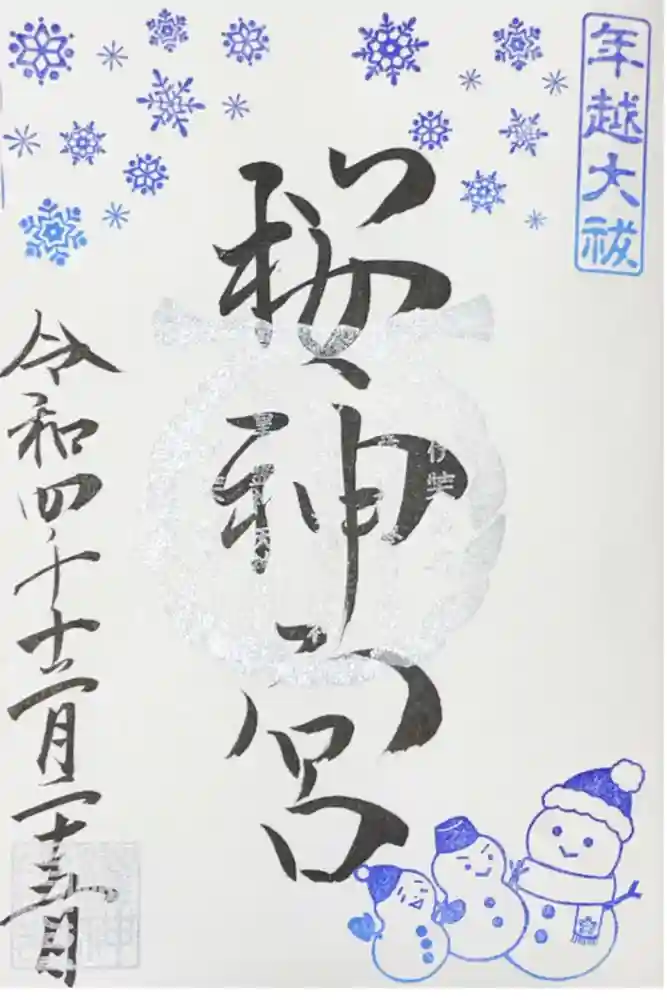 年越大祓
桜神宮
令和四年十二月二十三日